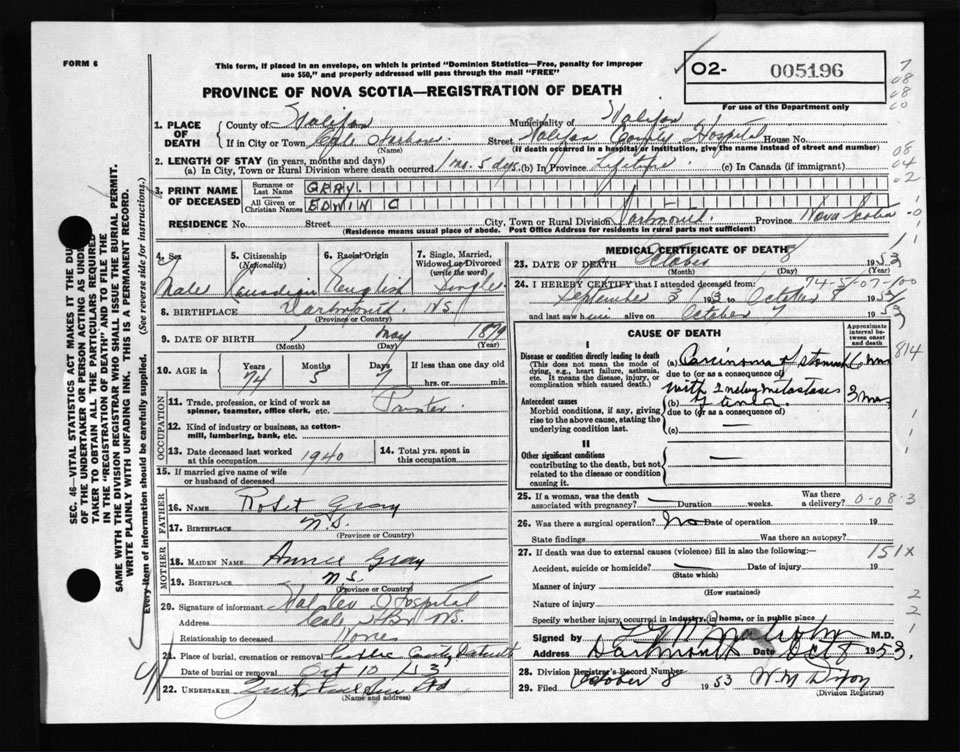 FORM 6
This form, if placed in an envelope, on which is printed "Dominion Statistics—Free, penalty for improper
use $50," and properly addressed will pass through the mail "FREE"
O2- 005196
For use of the Department only
PROVINCE OF NOVA SCOTIA—REGISTRATION OF DEATH
1. PLACE OF DEATH
County of Halifax Municipality of Halifax
If in City or Town Cole Harbour Street Halifax County Hospital House No.
(Name) (If death occurred in a hospital or institution, give the name instead of street and number)
2. LENGTH OF STAY (in years, months and days)
(a) In City, Town or Rural Division where death occurred 1 mo. 5 dys. (b) In Province Lifetime (c) In Canada (if immigrant)
3. PRINT NAME OF DECEASED
Surname or Last Name GRAY.
All Given or Christian Names EDWIN C
RESIDENCE No. Street City, Town or Rural Division Dartmouth Province Nova Scotia
(Residence means usual place of abode. Post Office Address for residents in rural parts not sufficient)
4. Sex Male
5. Citizenship (Nationality) Canadian
6. Racial Origin English
7. Single, Married, Widowed or Divorced (write the word) Single
8. BIRTHPLACE Dartmouth. N.S.
(Province or Country)
9. DATE OF BIRTH 1 May 1879
(Month) (Day) (Year)
10. AGE in Years 74 Months 5 Days 7 If less than one day old
hrs. or min.
OCCUPATION
11. Trade, profession, or kind of work as spinner, teamster, office clerk, etc. Printer
12. Kind of industry or business, as cotton-mill, lumbering, bank, etc.
13. Date deceased last worked at this occupation 1940
14. Total yrs. spent in this occupation
15. If married give name of wife or husband of deceased
FATHER
16. NAME Robt Gray
17. BIRTHPLACE N.S.
(Province or Country)
MOTHER
18. MAIDEN NAME Annie Gray
19. BIRTHPLACE N.S.
(Province or Country)
20. Signature of informant Hal Co Hospital
Address Cole Hbr N.S.
Relationship to deceased None
21. Place of burial, cremation or removal
Date of burial or removal Oct 10 53
22. UNDERTAKER
(Name and address)
MEDICAL CERTIFICATE OF DEATH
23. DATE OF DEATH October 8 1953
(Month) (Day) (Year)
24. I HEREBY CERTIFY that I attended deceased from:
74-5-07-100
September 3 1953 to October 8 1953
and last saw him alive on October 7 1953
CAUSE OF DEATH
Approximate interval between onset and death
Disease or condition directly leading to death
(This does not mean the mode of dying, e.g., heart failure, asthenia, etc. It means the disease, injury, or complication which caused death.)
(a) Carcinoma of stomach 6 mos
due to (or as a consequence of)
Antecedent causes
Morbid conditions, if any, giving rise to the above cause, stating the underlying condition last.
with metastases
(b) of liver. 3 mos
due to (or as a consequence of)
(c) —
II
Other significant conditions
contributing to the death, but not related to the disease or condition causing it.
—
814
25. If a woman, was the death associated with pregnancy? — Duration weeks. Was there a delivery? 0-08-3
26. Was there a surgical operation? No Date of operation 19
State findings Was there an autopsy?
27. If death was due to external causes (violence) fill in also the following:— 151X
Accident, suicide or homicide? — Date of injury 19
(State which)
Manner of injury
(How sustained)
Nature of injury
Specify whether injury, occurred in industry, in home, or in public place
Signed by Malcolm M.D.
Address Dartmouth Date Oct 8 1953.
28. Division Registrar's Record Number
29. Filed October 8 1953 W M Dixon
(Division Registrar)
SEC. 46—VITAL STATISTICS ACT MAKES IT THE DUTY
OF THE UNDERTAKER OR PERSON ACTING AS UNDER-
TAKER TO OBTAIN ALL THE PARTICULARS REQUIRED
IN THE "REGISTRATION OF DEATH" AND TO FILE THE
SAME WITH THE DIVISION REGISTRAR WHO SHALL ISSUE THE BURIAL PERMIT.
WRITE PLAINLY WITH UNFADING INK. THIS IS A PERMANENT RECORD.
Every item of information should be carefully supplied. (See reverse side for instructions.)